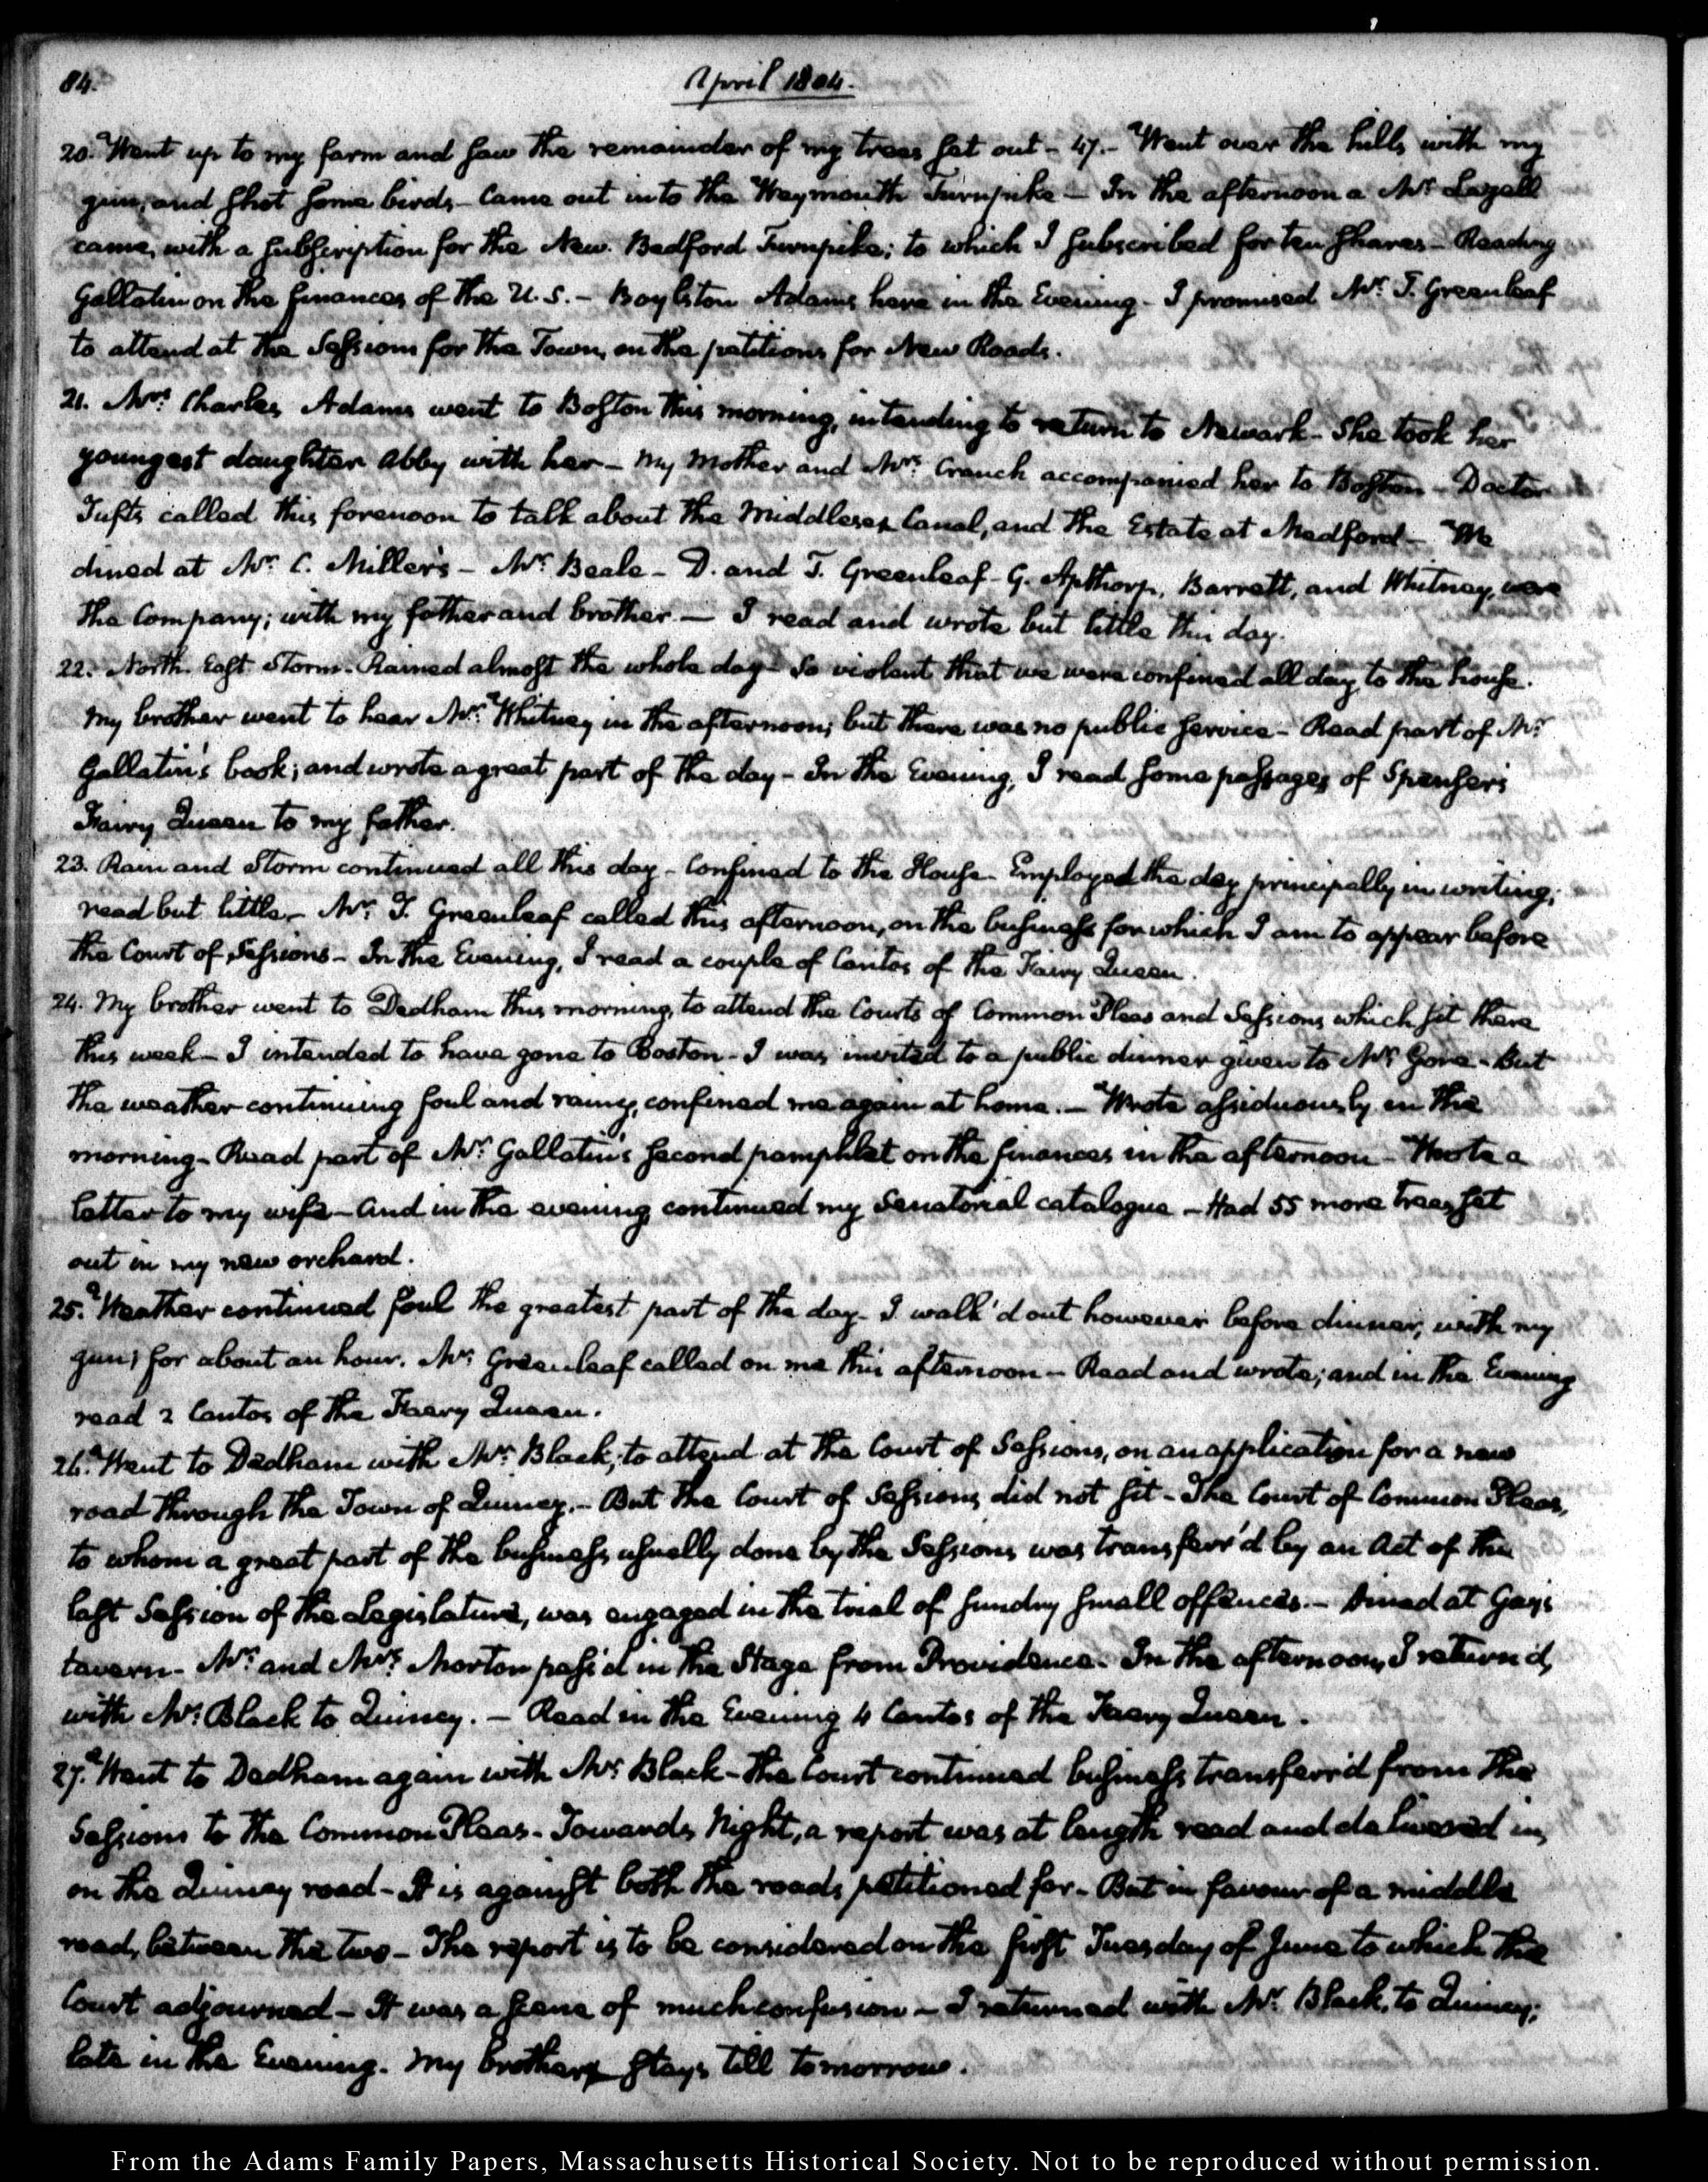 84.
April 1804.
20. Went up to my farm and saw the remainder of my trees set out - 47. - Went over the hills with my
gun, and shot some birds - Came out into the Weymouth Turnpike - In the afternoon a Mr. Lazell
came, with a subscription for the New. Bedford Turnpike; to which I subscribed for ten shares - Reading
Gallatin on the finances of the U.S. - Boylston Adams here in the Evening - I promised Mr. T. Greenleaf
to attend at the Sessions for the Town, on the petitions for New Roads.
21. Mrs. Charles Adams went to Boston this morning, intending to return to Newark - She took her
youngest daughter Abby with her - My Mother and Mrs. Cranch accompanied her to Boston - Doctor
Tufts called this forenoon to talk about the Middlesex Canal, and the Estate at Medford - We
dined at Mr. C. Miller's - Mr. Beale - D. and T. Greenleaf - G. Apthorp, Barrett, and Whitney, were
the Company; with my father and brother. - I read and wrote but little this day.
22. North. East Storm - Rained almost the whole day - So violent that we were confined all day to the house.
My brother went to hear Mr. Whitney in the afternoon; but there was no public service - Read part of Mr.
Gallatin's book; and wrote a great part of the day - In the Evening, I read some passages of Spenser's
Fairy Queen to my father.
23. Rain and Storm continued all this day - Confined to the House - Employed the day principally in writing;
read but little - Mr. T. Greenleaf called this afternoon, on the business for which I am to appear before
the Court of Sessions - In the Evening, I read a couple of Cantos of the Fairy Queen.
24. My brother went to Dedham this morning, to attend the Courts of Common Pleas and Sessions which sit there
this week - I intended to have gone to Boston - I was invited to a public dinner given to Mr. Gore - But
the weather continuing foul and rainy, confined me again at home. - Wrote assiduously in the
morning - Read part of Mr. Gallatin's second pamphlet on the finances in the afternoon - Wrote a
letter to my wife - And in the evening continued my Senatorial catalogue - Had 55 more trees set
out in my new orchard.
25. Weather continued foul the greatest part of the day - I walk'd out however before dinner, with my
gun; for about an hour. Mr. Greenleaf called on me this afternoon - Read and wrote; and in the Evening
read 2 Cantos of the Faery Queen.
26. Went to Dedham with Mr. Black, to attend at the Court of Sessions, on an application for a new
road through the Town of Quincy. - But the Court of Sessions did not sit - The Court of Common Pleas,
to whom a great part of the business usually done by the Sessions was transferr'd by an Act of the
last Session of the Legislature, was engaged in the trial of sundry small offences. - Dined at Gay's
tavern - Mr. and Mrs. Morton pass'd in the Stage from Providence - In the afternoon, I return'd,
with Mr. Black to Quincy. - Read in the Evening 4 Cantos of the Faery Queen.
27. Went to Dedham again with Mr. Black - The Court continued business transferr'd from the
Sessions to the Common Pleas - Towards Night, a report was at length read and delivered in,
on the Quincy road - It is against both the roads petitioned for - But in favour of a middle
road, between the two - The report is to be considered on the first Tuesday of June to which the
Court adjourned - It was a scene of much confusion - I returned with Mr. Black, to Quincy;
late in the Evening. My brother stays till tomorrow.
From the Adams Family Papers, Massachusetts Historical Society. Not to be reproduced without permission.